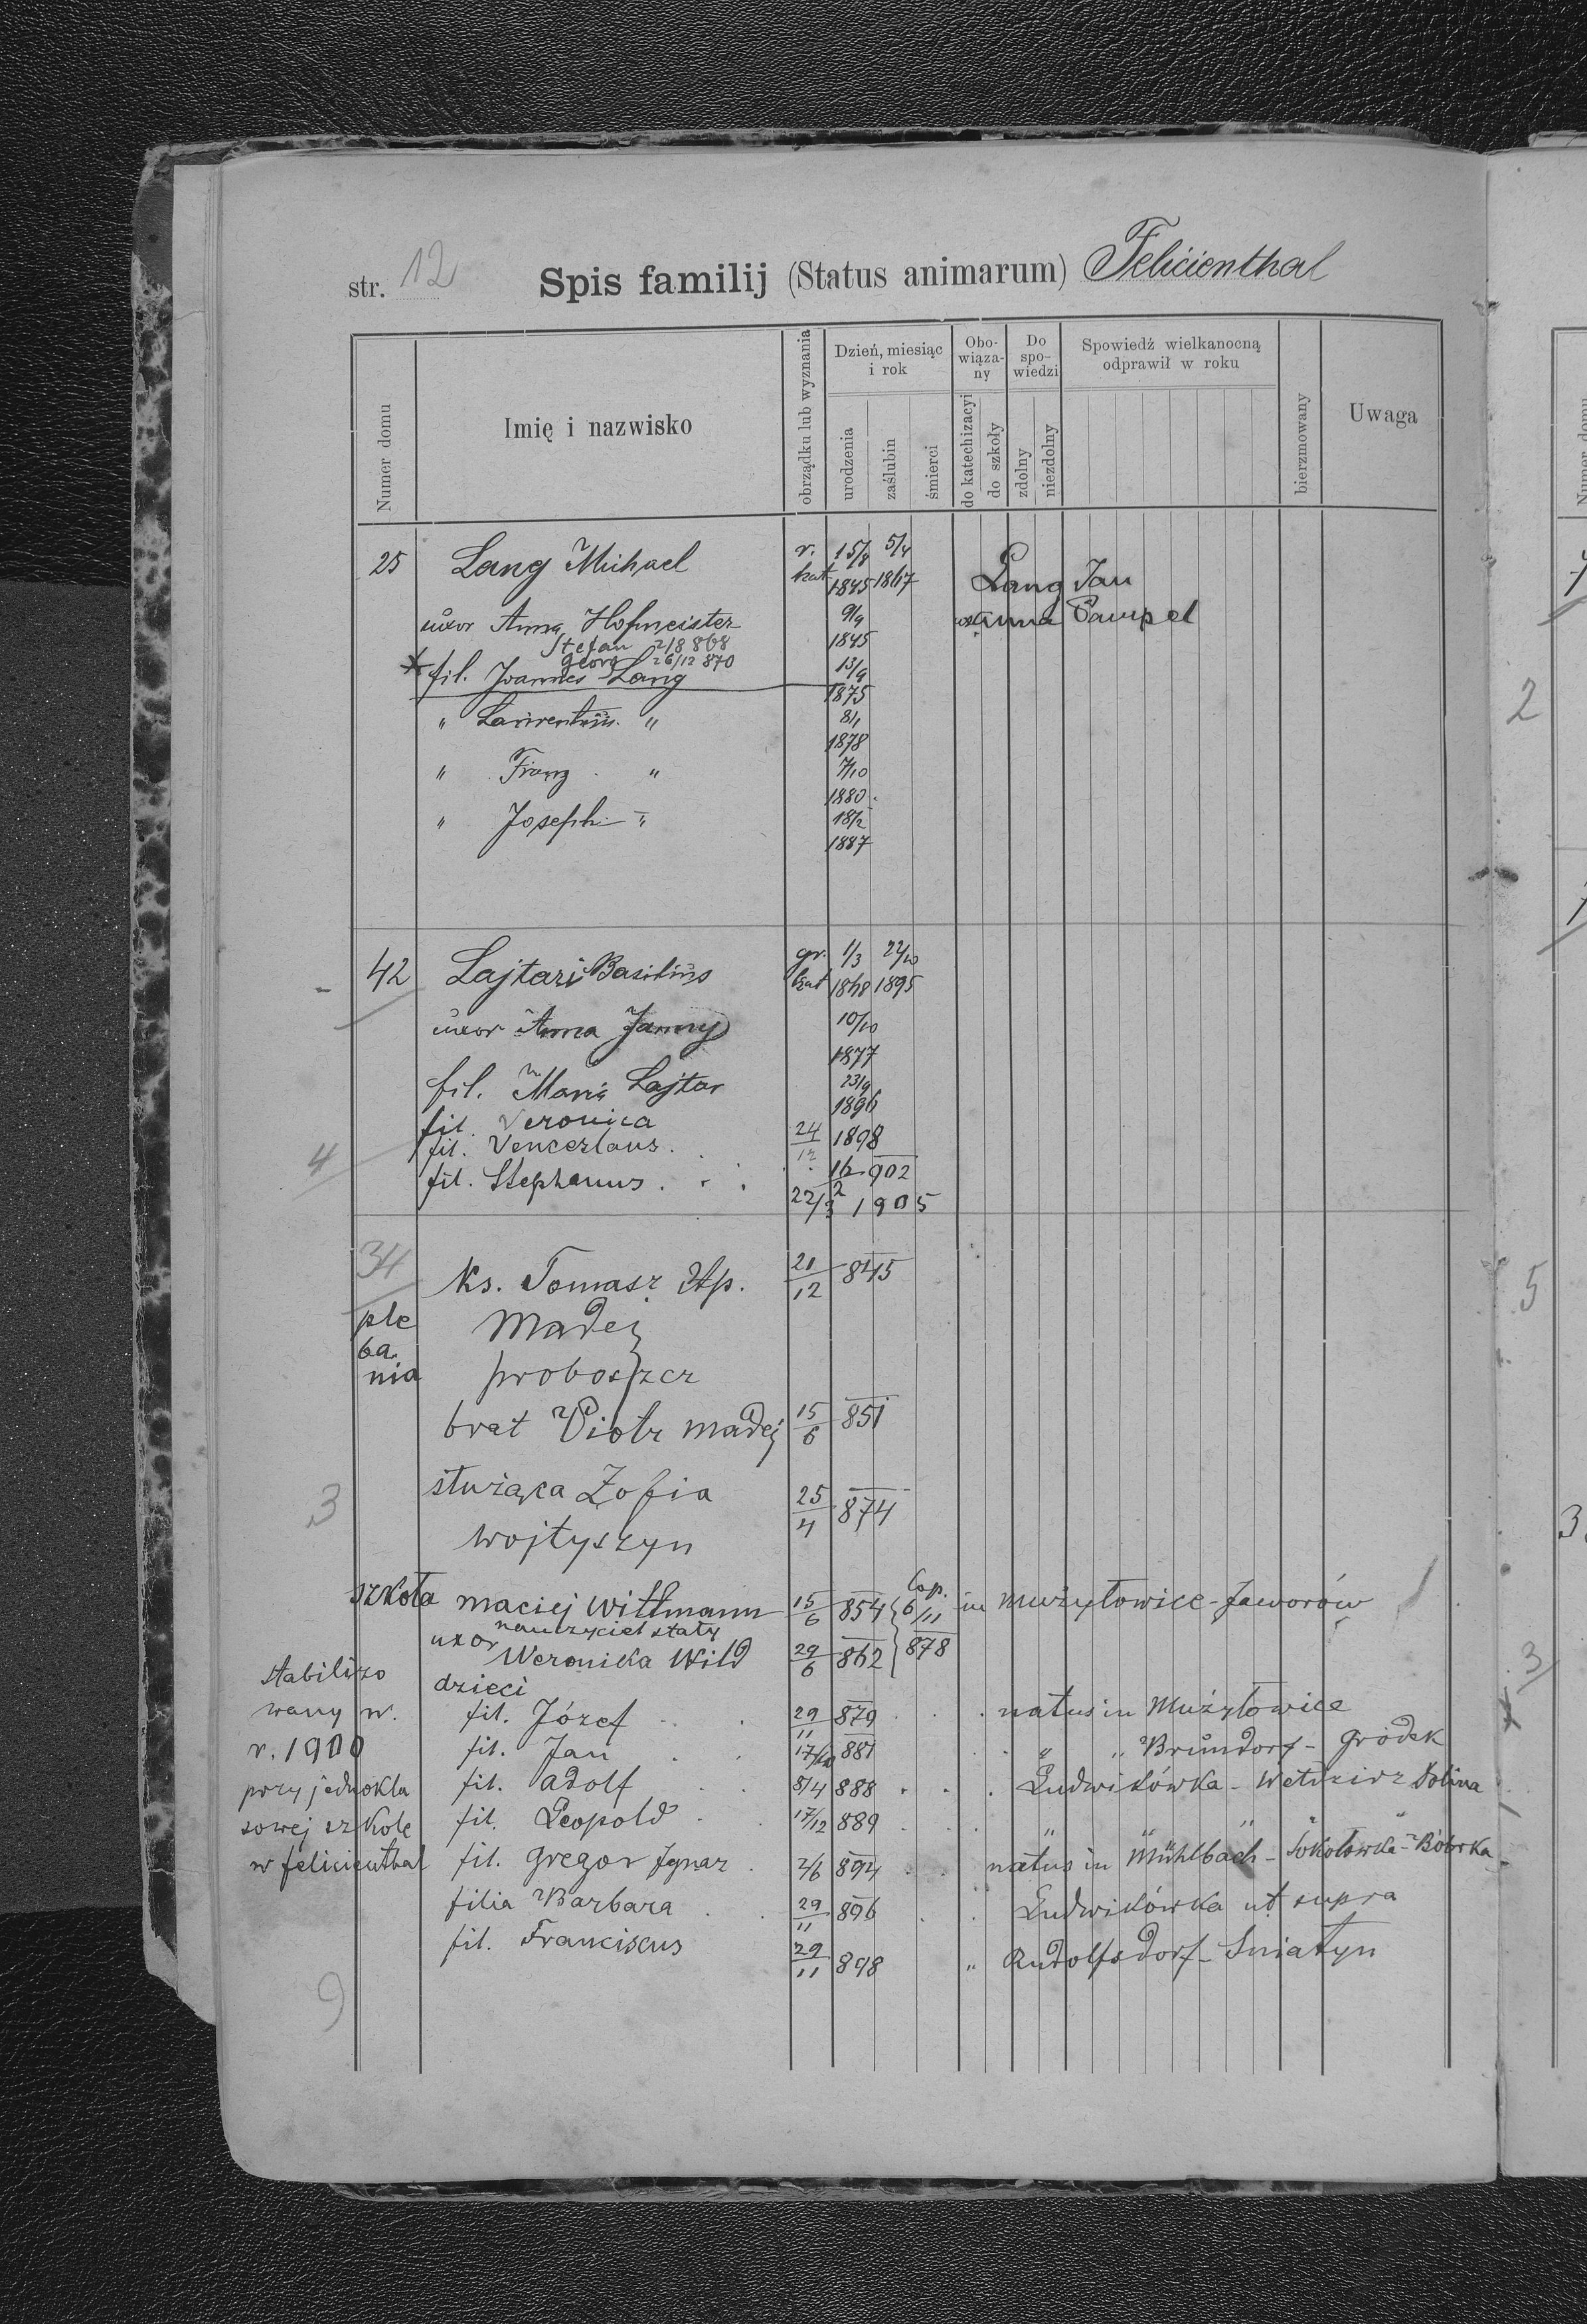 str. 12 Spis familij (Status animarum) Felicienthal
Numer domu
Imię i nazwisko
obrządku lub wyznania
Dzień, miesiąc i rok
urodzenia
zaślubin
śmierci
Obo-wiąza-ny
do katechizacyi
do szkoły
Do spo-wiedzi
zdolny
niezdolny
Spowiedź wielkanocną odprawił w roku
bierzmowany
Uwaga
25 Lang Michael r. kat 15/8 1845 5/4 1867 Lang Jan
uxor Anna Hofmeister 9/9 1845 Anna Pampel
Stefan 2/8 868
Georg 26/12 870
* fil. Joannes Lang 13/9 1875
" " 8/1 1878
" Franz " 7/10 1880
" Joseph " 18/2 1887
42 Lajtari Basilius gr. kat 1/3 1868 22/10 1895
uxor Anna Janny 10/10 1877
fil. Maria Lajtar 23/9 1896
fil. Veronica 24/12 1898
4 fil. Venceslaus 16/2 902
fil. Stephanus 22/3 1905
34 ks. Tomasz Ap. 21/12 845
ple Madej
ba
nia proboszcz
brat Piotr Madej 15/6 851
3 służąca Zofia 25/4 874
Wojtyszyn
szkoła Maciej Wittmann 15/6 854 Cop. 6/11 878 in Mużyłowice - Jaworów
nauczyciel stały
uxor Weronika Wild 29/6 862
stabilizo dzieci
wany w. fil. Józef 29/11 879 natus in Mużyłowice
r. 1900 fil. Jan 881 " " Brundorf - Gródek
przy jednokla fil. Adolf 8/4 888 Ludwikówka - Wełdzirz Dolina
sowej szkole fil. Leopold 17/12 889 " " " "
w Felicienthal fil. Gregor Ignaz 2/6 894 natus in Mühlbach - Sokołówka - Bóbrka
filia Barbara 29/11 896 Ludwikówka ut supra
fil. Franciscus 29/11 898 " Rudolfsdorf - Sniatyn
9